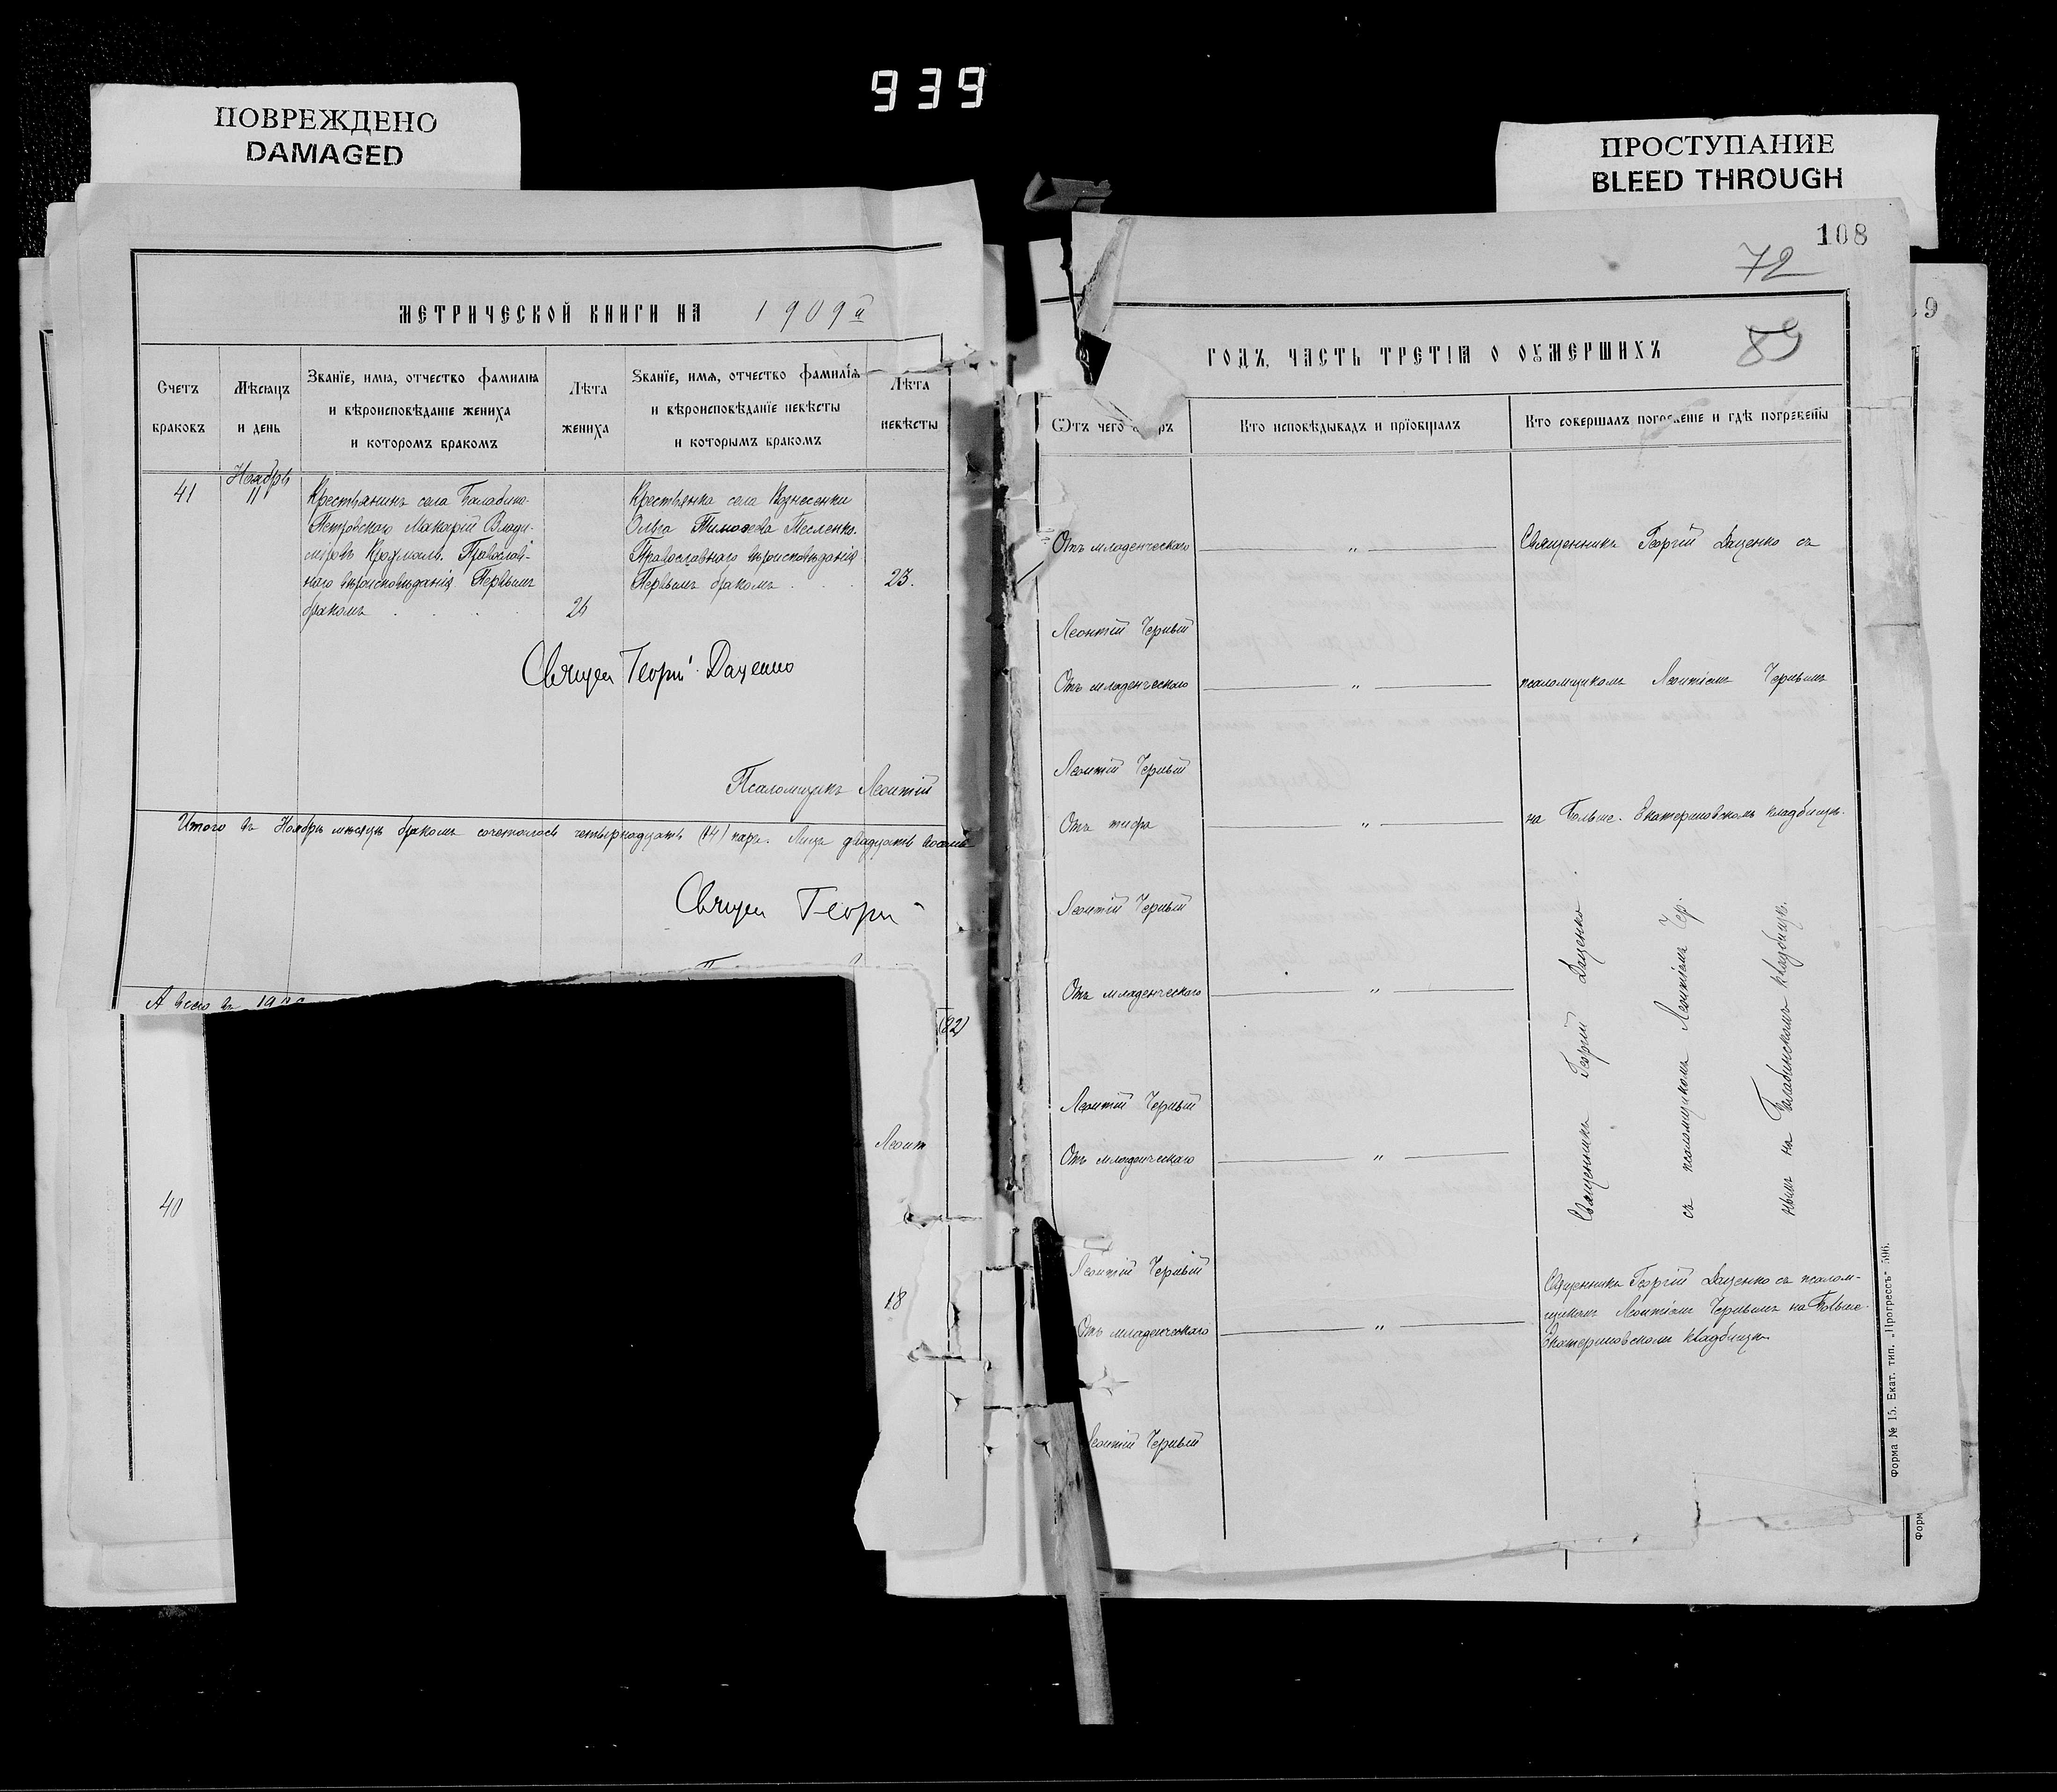 939
ПОВРЕЖДЕНО
DAMAGED
ПРОСТУПАНИЕ
BLEED THROUGH
МЕТРИЧЕСКОЙ КНИГИ НА 1909й
Счетъ браковъ
Мѣсяцъ и день
Званїе, имѧ, отчество фамилїѧ
и вѣроисповѣданїе жениха
и которомъ бракомъ
Лѣта
жениха
Званїе, имѧ, отчество фамилїѧ
и вѣроисповѣданїе невѣсты
и которымъ бракомъ
Лѣта
невѣсты
41
Ноябрь
11
Крестьянинъ села Балабино-
Петровскаго Макарій Влади-
міровъ Крахмаль. Православ-
наго вѣроисповѣданія Первымъ
бракомъ
26
Крестьянка села Вознесенки
Ольга Тимоѳеева Тесленко.
Православнаго вѣроисповѣданія
Первымъ бракомъ
23.
Священ Георгій Даценко
Псаломщикъ Леонтій
Итого въ Ноябрѣ мѣсяцѣ бракомъ сочеталось четырнадцать (14) паръ. Лицъ двадцать восемь
Священ Георгій
А всего въ 190
(82)
Леонт
40
18
108
72
89
9
ГОДЪ, ЧАСТЬ ТРЕТЇѦ О ОУМЕРШИХЪ
Ѿтъ чего
Кто исповѣдывалъ и прїобщалъ
Кто совершалъ погребенїе и гдѣ погребены
Отъ младенческаго " Священникъ Георгій Даценко съ
Леонтій Черный
Отъ младенческаго " псаломщикомъ Леонтіемъ Чернымъ
Леонтій Черный
Отъ тифа " на Больше-Екатериновскомъ кладбищѣ.
Леонтій Черный
Отъ младенческаго "
Леонтій Черный
Отъ младенческаго "
Священникъ Георгій Даценко
съ псаломщикомъ Леонтіемъ Чер-
нымъ на Балабинскомъ кладбищѣ.
Леонтій Черный
Отъ младенческаго "
Священникъ Георгій Даценко съ псалом-
щикомъ Леонтіемъ Чернымъ на Больше-
Екатериновскомъ кладбищѣ.
Леонтій Черный
Форма № 15. Екат. тип. „Прогрессъ“ 596.
Форм